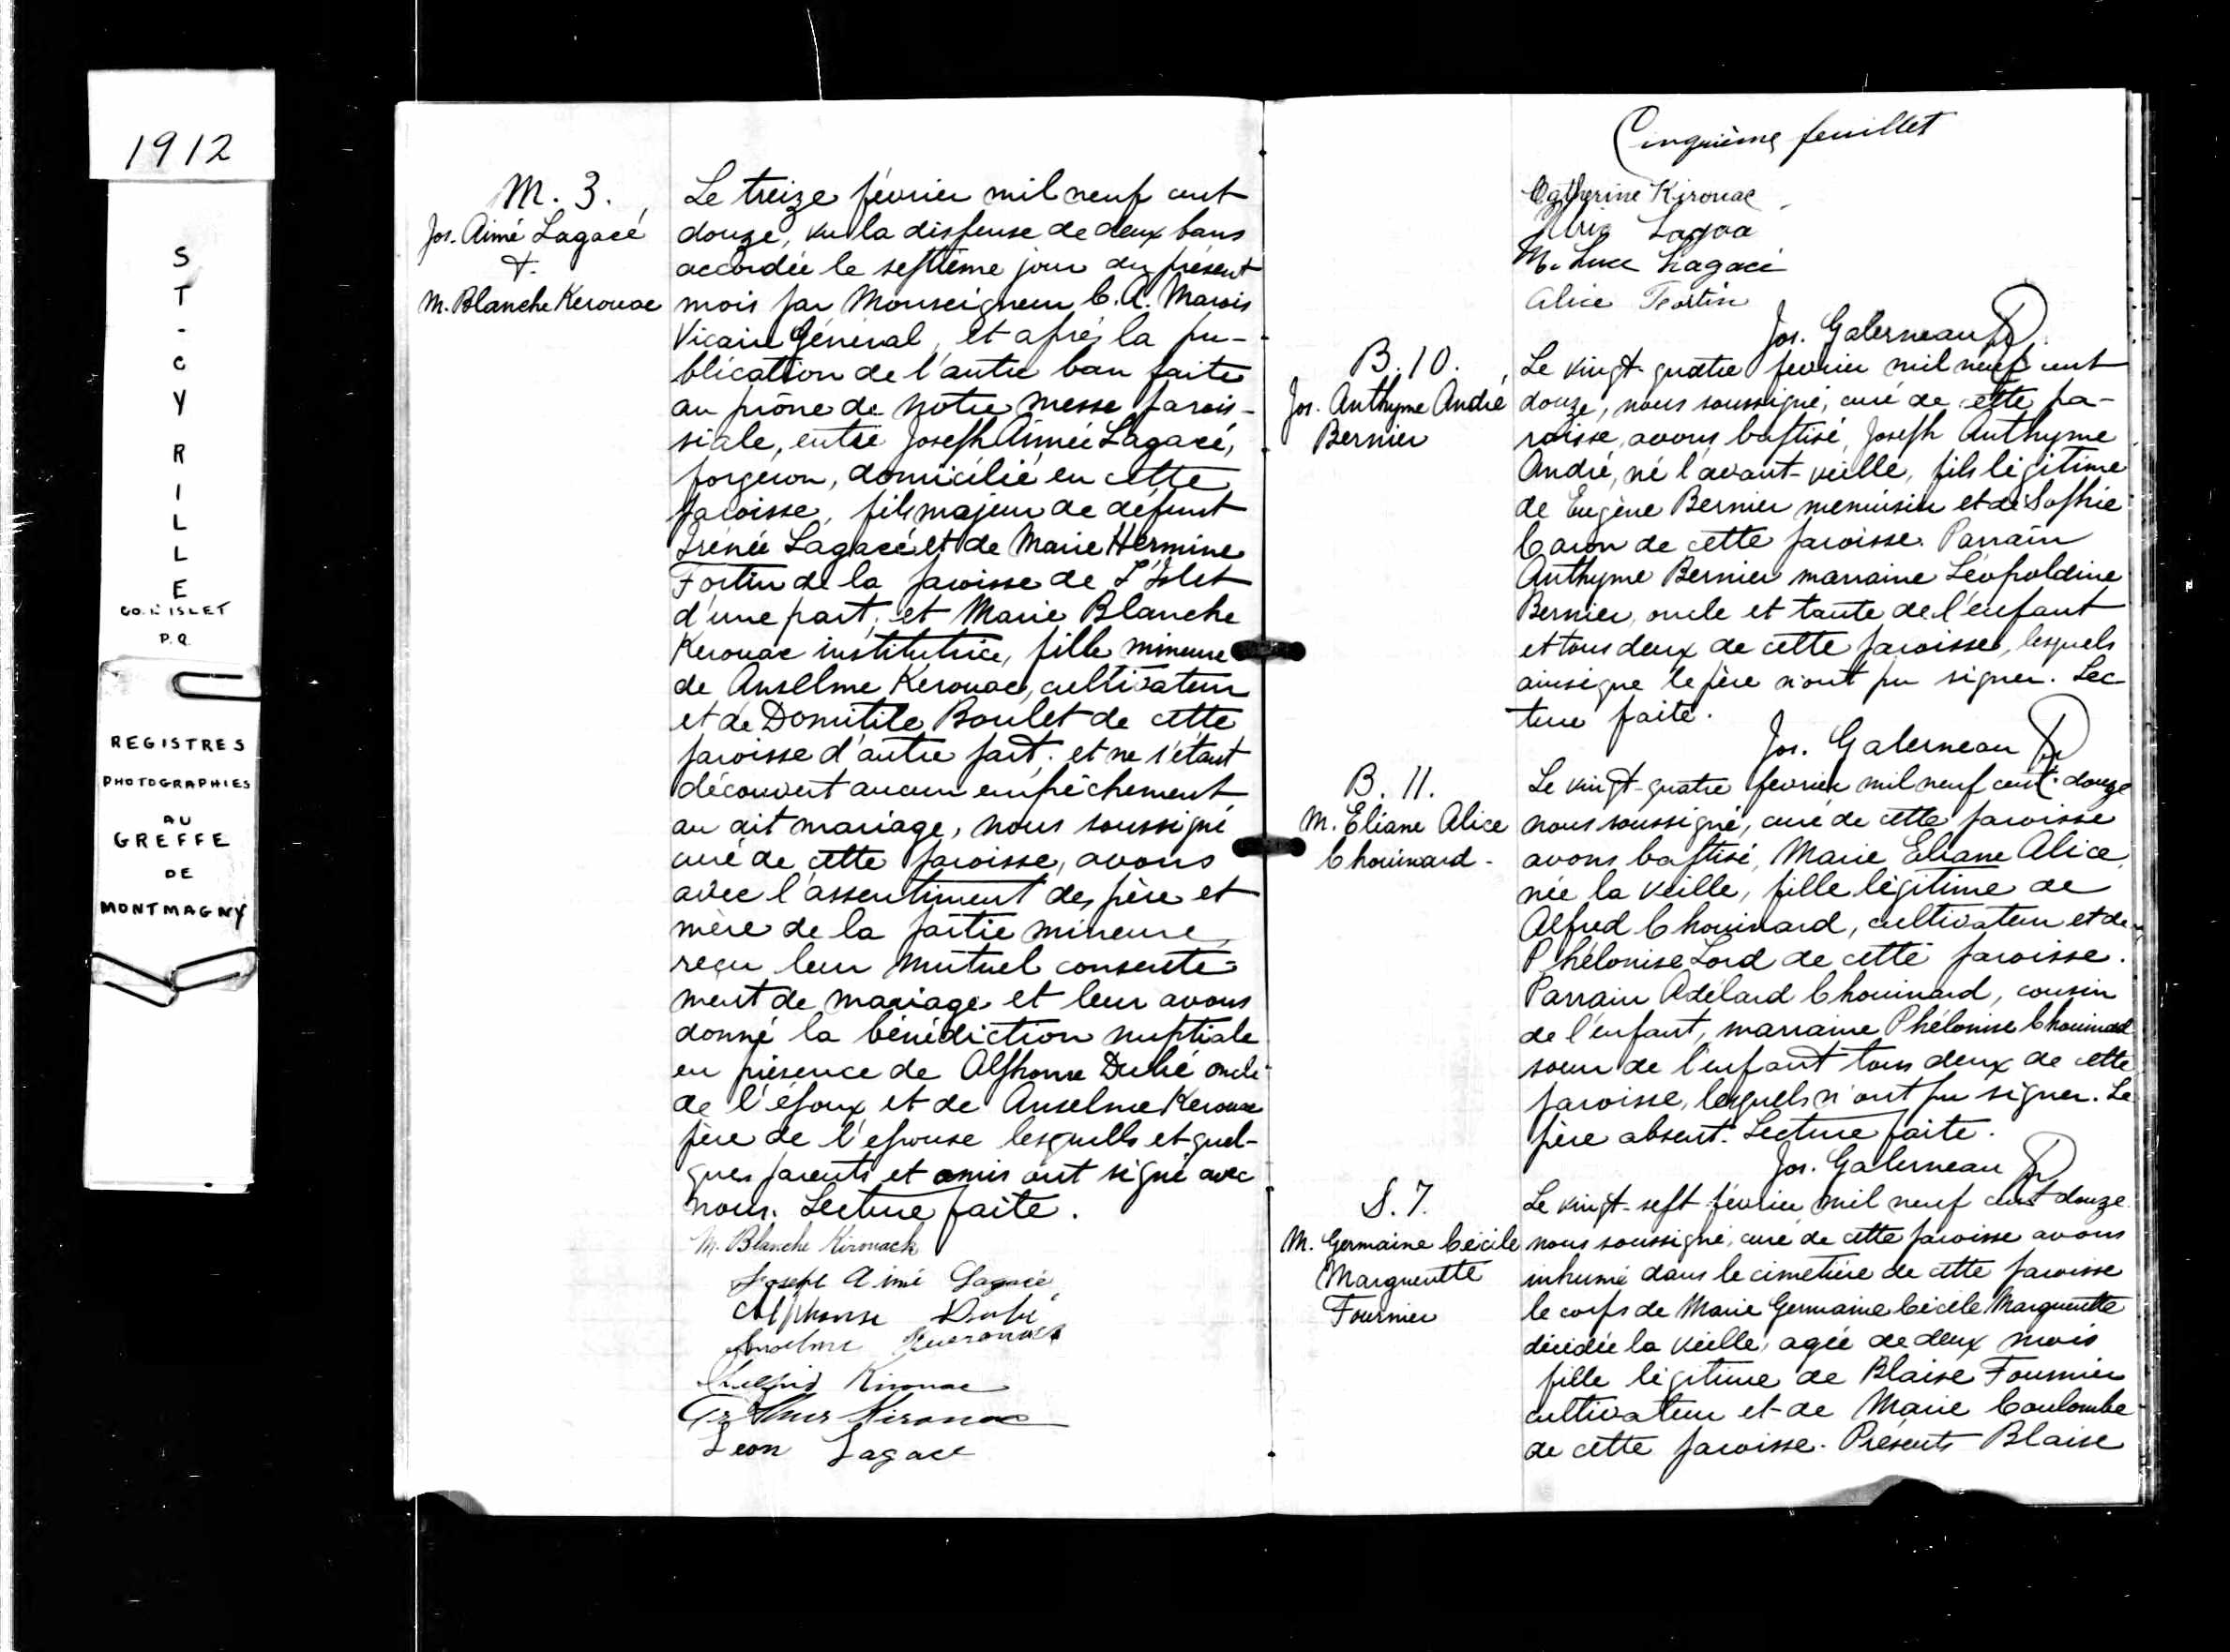 1912
ST-CYRILLE
CO. L'ISLET
P.Q.
REGISTRES
PHOTOGRAPHIES
AU
GREFFE
DE
MONTMAGNY
M. 3.
Jos. Aimé Lagacé
&
M. Blanche Kerouac
Le treize février mil neuf cent
douze, vu la dispense de deux bans
accordée le septième jour du présent
mois par Monseigneur C. A. Marois
Vicaire Général, et après la pu-
blication de l'autre ban faite
au prône de notre messe parois-
siale, entre Joseph Aimée Lagacé,
forgeron, domicilié en cette
paroisse, fils majeur de défunt
Irénée Lagacé et de Marie Hermine
Fortin de la paroisse de L'Islet
d'une part; et Marie Blanche
Kerouac institutrice, fille mineure
de Anselme Kerouac, cultivateur
et de Domitile Boulet de cette
paroisse d'autre part; et ne s'étant
découvert aucun empêchement
au dit mariage, nous soussigné
curé de cette paroisse, avons
avec l'assentiment des père et
mère de la partie mineure,
reçu leur mutuel consente-
ment de mariage et leur avons
donné la bénédiction nuptiale
en présence de Alphonse Dubé oncle
de l'époux et de Anselme Kerouac
père de l'épouse lesquells et quel-
ques parents et amis ont signé avec
nous. Lecture faite.
M. Blanche Kirouack
Joseph Aimé Lagacé
Alphonse Dubé
Anselme
Kirouac
Arthur Kirouac
Leon Lagace
Cinquième feuillet
Catherine Kirouac
M. Luce Lagacé
Alice Fortin
Jos. Galerneau Ptr
B. 10.
Jos. Anthyme André
Bernier
Le vingt-quatre fevrier mil neuf cent
douze, nous soussigné, curé de cette pa-
roisse, avons baptisé, Joseph Anthyme
André, né l'avant-veille, fils légitime
de Eugène Bernier menuisier et de Sophie
Caron de cette paroisse. Parrain
Anthyme Bernier marraine Léopoldine
Bernier, oncle et tante de l'enfant
et tous deux de cette paroisse, lesquels
ainsi que le père n'ont pu signer. Lec
ture faite.
Jos. Galerneau Ptr
B. 11.
M. Eliane Alice
Chouinard-
Le vingt-quatre fevrier mil neuf cent. douze
nous soussigné, curé de cette paroisse
avons baptisé, Marie Eliane Alice,
née la veille, fille légitime de
Alfred Chouinard, cultivateur et de
Phélonise Lord de cette paroisse.
Parrain Adélard Chouinard, cousin
de l'enfant, marraine Phélonise Chouinard
soeur de l'enfant tous deux de cette
paroisse, lesquels n'ont pu signer. Le
père absent. Lecture faite.
Jos. Galerneau Ptr
S. 7.
M. Germaine Cécile
Margueritte
Fournier
Le vingt-sept février mil neuf cent douze
nous soussigné, curé de cette paroisse avons
inhumé dans le cimetière de cette paroisse
le corps de Marie Germaine Cécile Margueritte
décédée la veille, agée de deux mois
fille légitime de Blaise Fournier
cultivateur et de Marie Coulombe
de cette paroisse. Présents Blaise